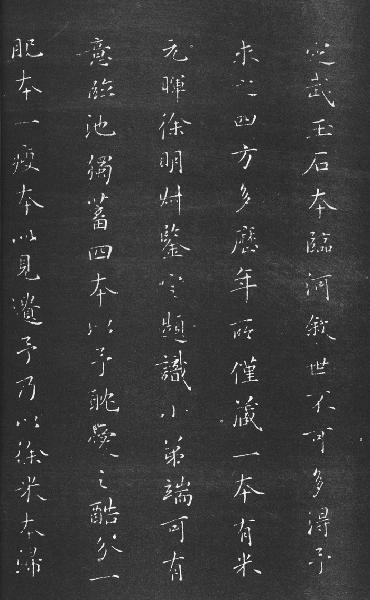 定武玉石本臨河敘世不可多得予
求之四方多歷年所僅藏一本有米
元暉徐明叔鑒定題識小弟端可有
意臨池獨蓄四本以予耽愛之酷分一
肥本一瘦本以見遺予乃以徐米本歸